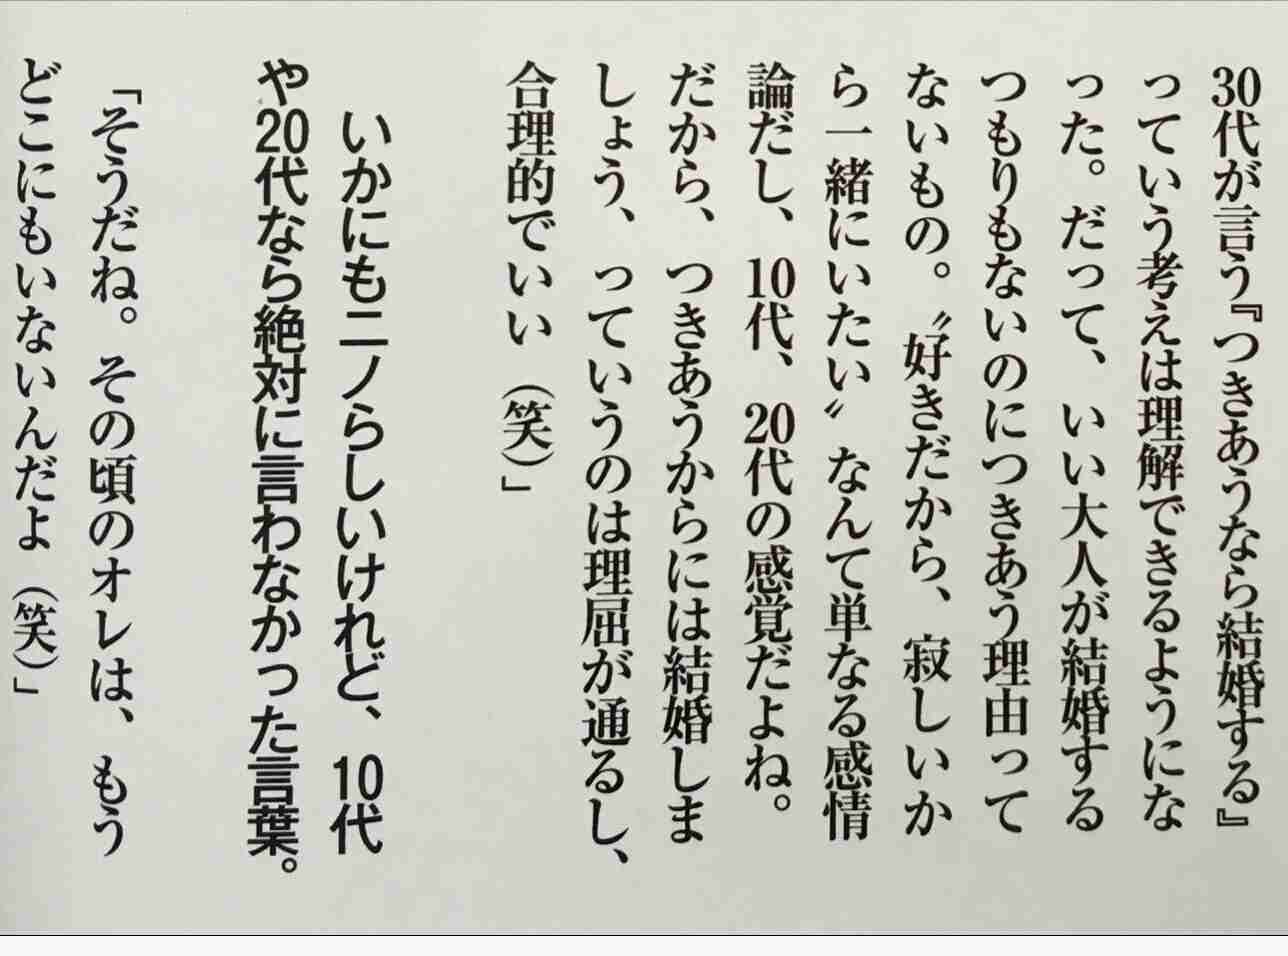 30代が言う『つきあうなら結婚する』
っていう考えは理解できるようにな
った。だって、いい大人が結婚する
つもりもないのにつきあう理由って
ないもの。〝好きだから、寂しいか
ら一緒にいたい〟なんて単なる感情
論だし、10代、20代の感覚だよね。
だから、つきあうからには結婚しま
しょう、っていうのは理屈が通るし、
合理的でいい（笑）」
いかにもニノらしいけれど、10代
や20代なら絶対に言わなかった言葉。
「そうだね。その頃のオレは、もう
どこにもいないんだよ（笑）」